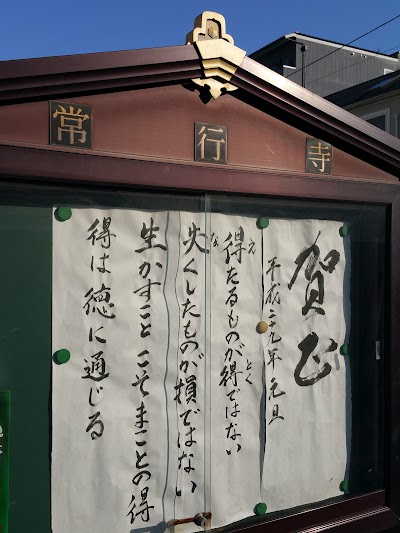 常行寺
賀正
平成二十九年 元旦
え
とく
得たるものが得ではない
な
失くしたものが損ではない
生かすこと こそまことの得
得は 徳に通じる